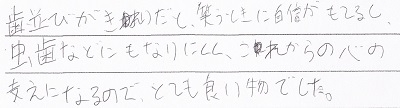 歯並びがきれいだと、笑うときに自信がもてるし、
虫歯などにもなりにくく、これからの心の
支えになるので、とても良い物でした。